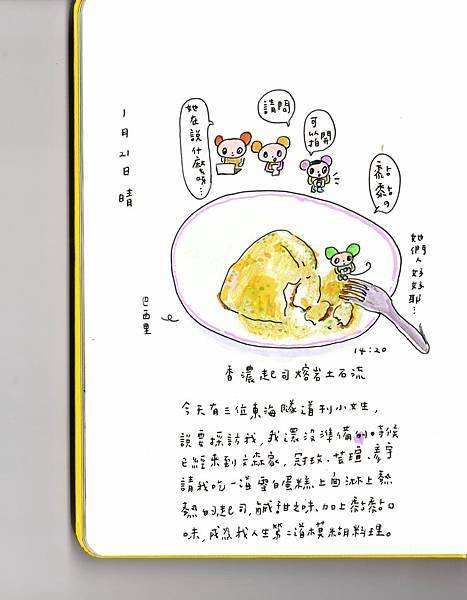 1月21日 晴
她在說什麼咦...
請問
可以拍開
黏黏の
她們人好好耶...
巴西里
14:20
香濃起司熔岩土石流
今天有三位東海隊道刊小女生,
說要採訪我,我還沒準備的時候
已經來到文森家,冠玫、芸瑄、彥宇
請我吃一道雪白蛋糕上面淋上熱
熱的起司,鹹甜之味、加上黏黏口
味,成為我人生第二道模糊料理。